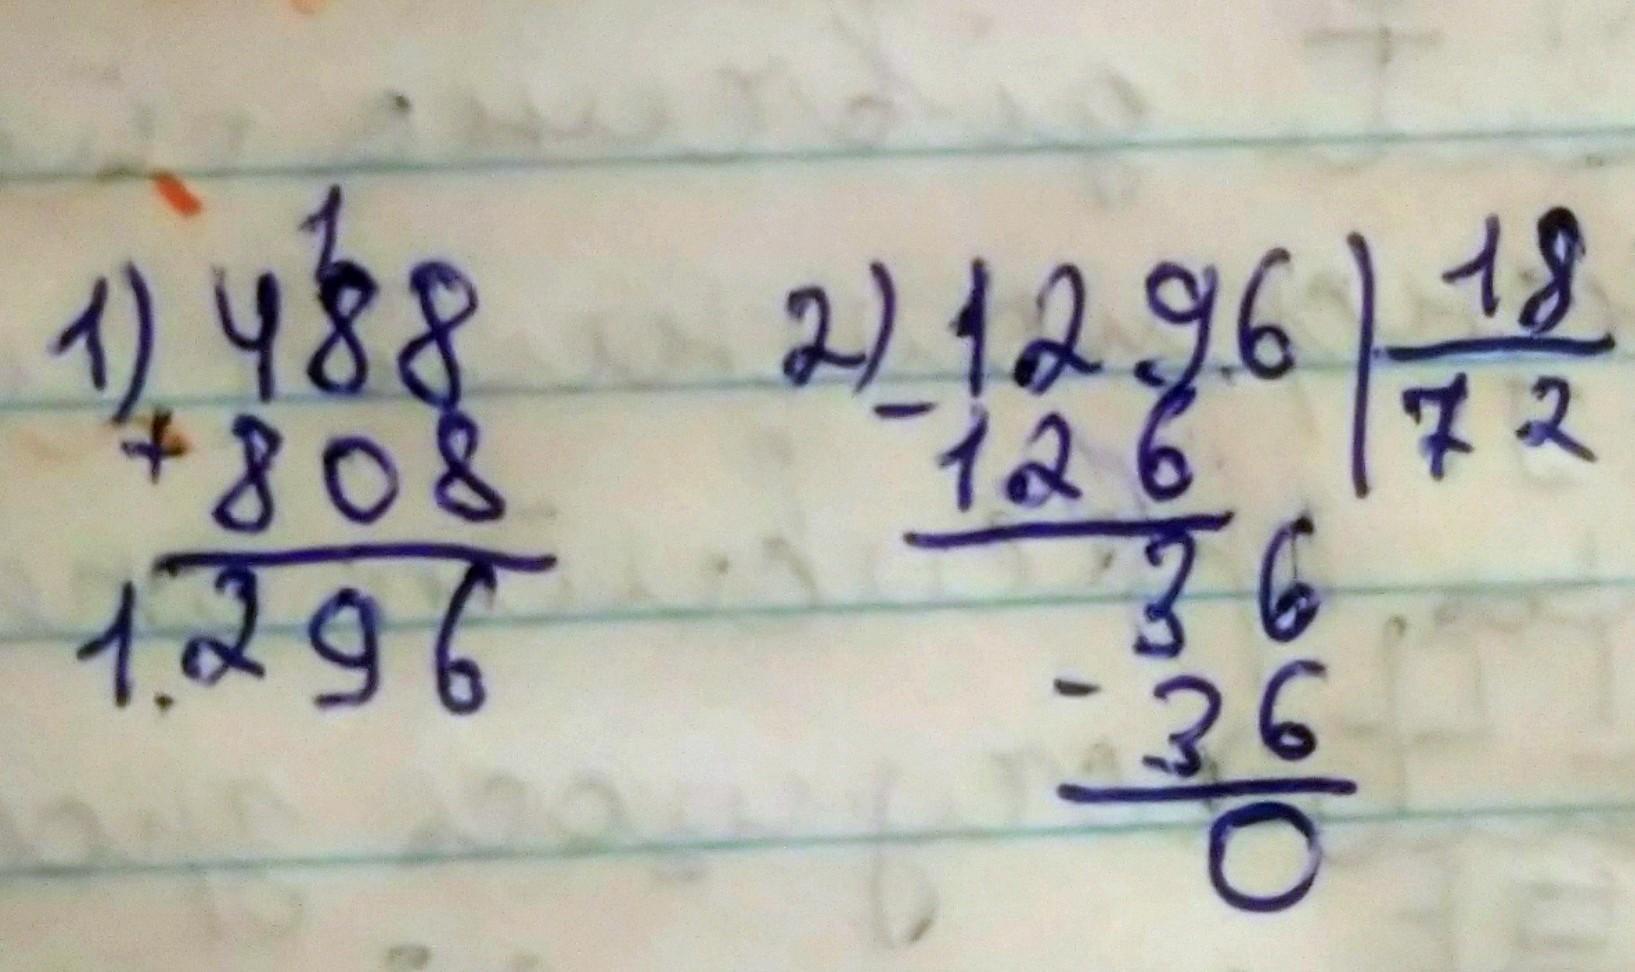 1
1) 488
+ 808
1.296
2) 1296 | 18
- 126 | 72
36
- 36
0